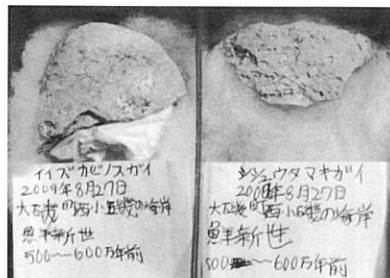 イイズカビノスガイ
2009年8月27日
大磯町西小磯の海岸
鮮新世
500〜600万年前
シシュウタマキガイ
年8月27日
大磯町西小磯の海岸
鮮新世
500〜600万年前